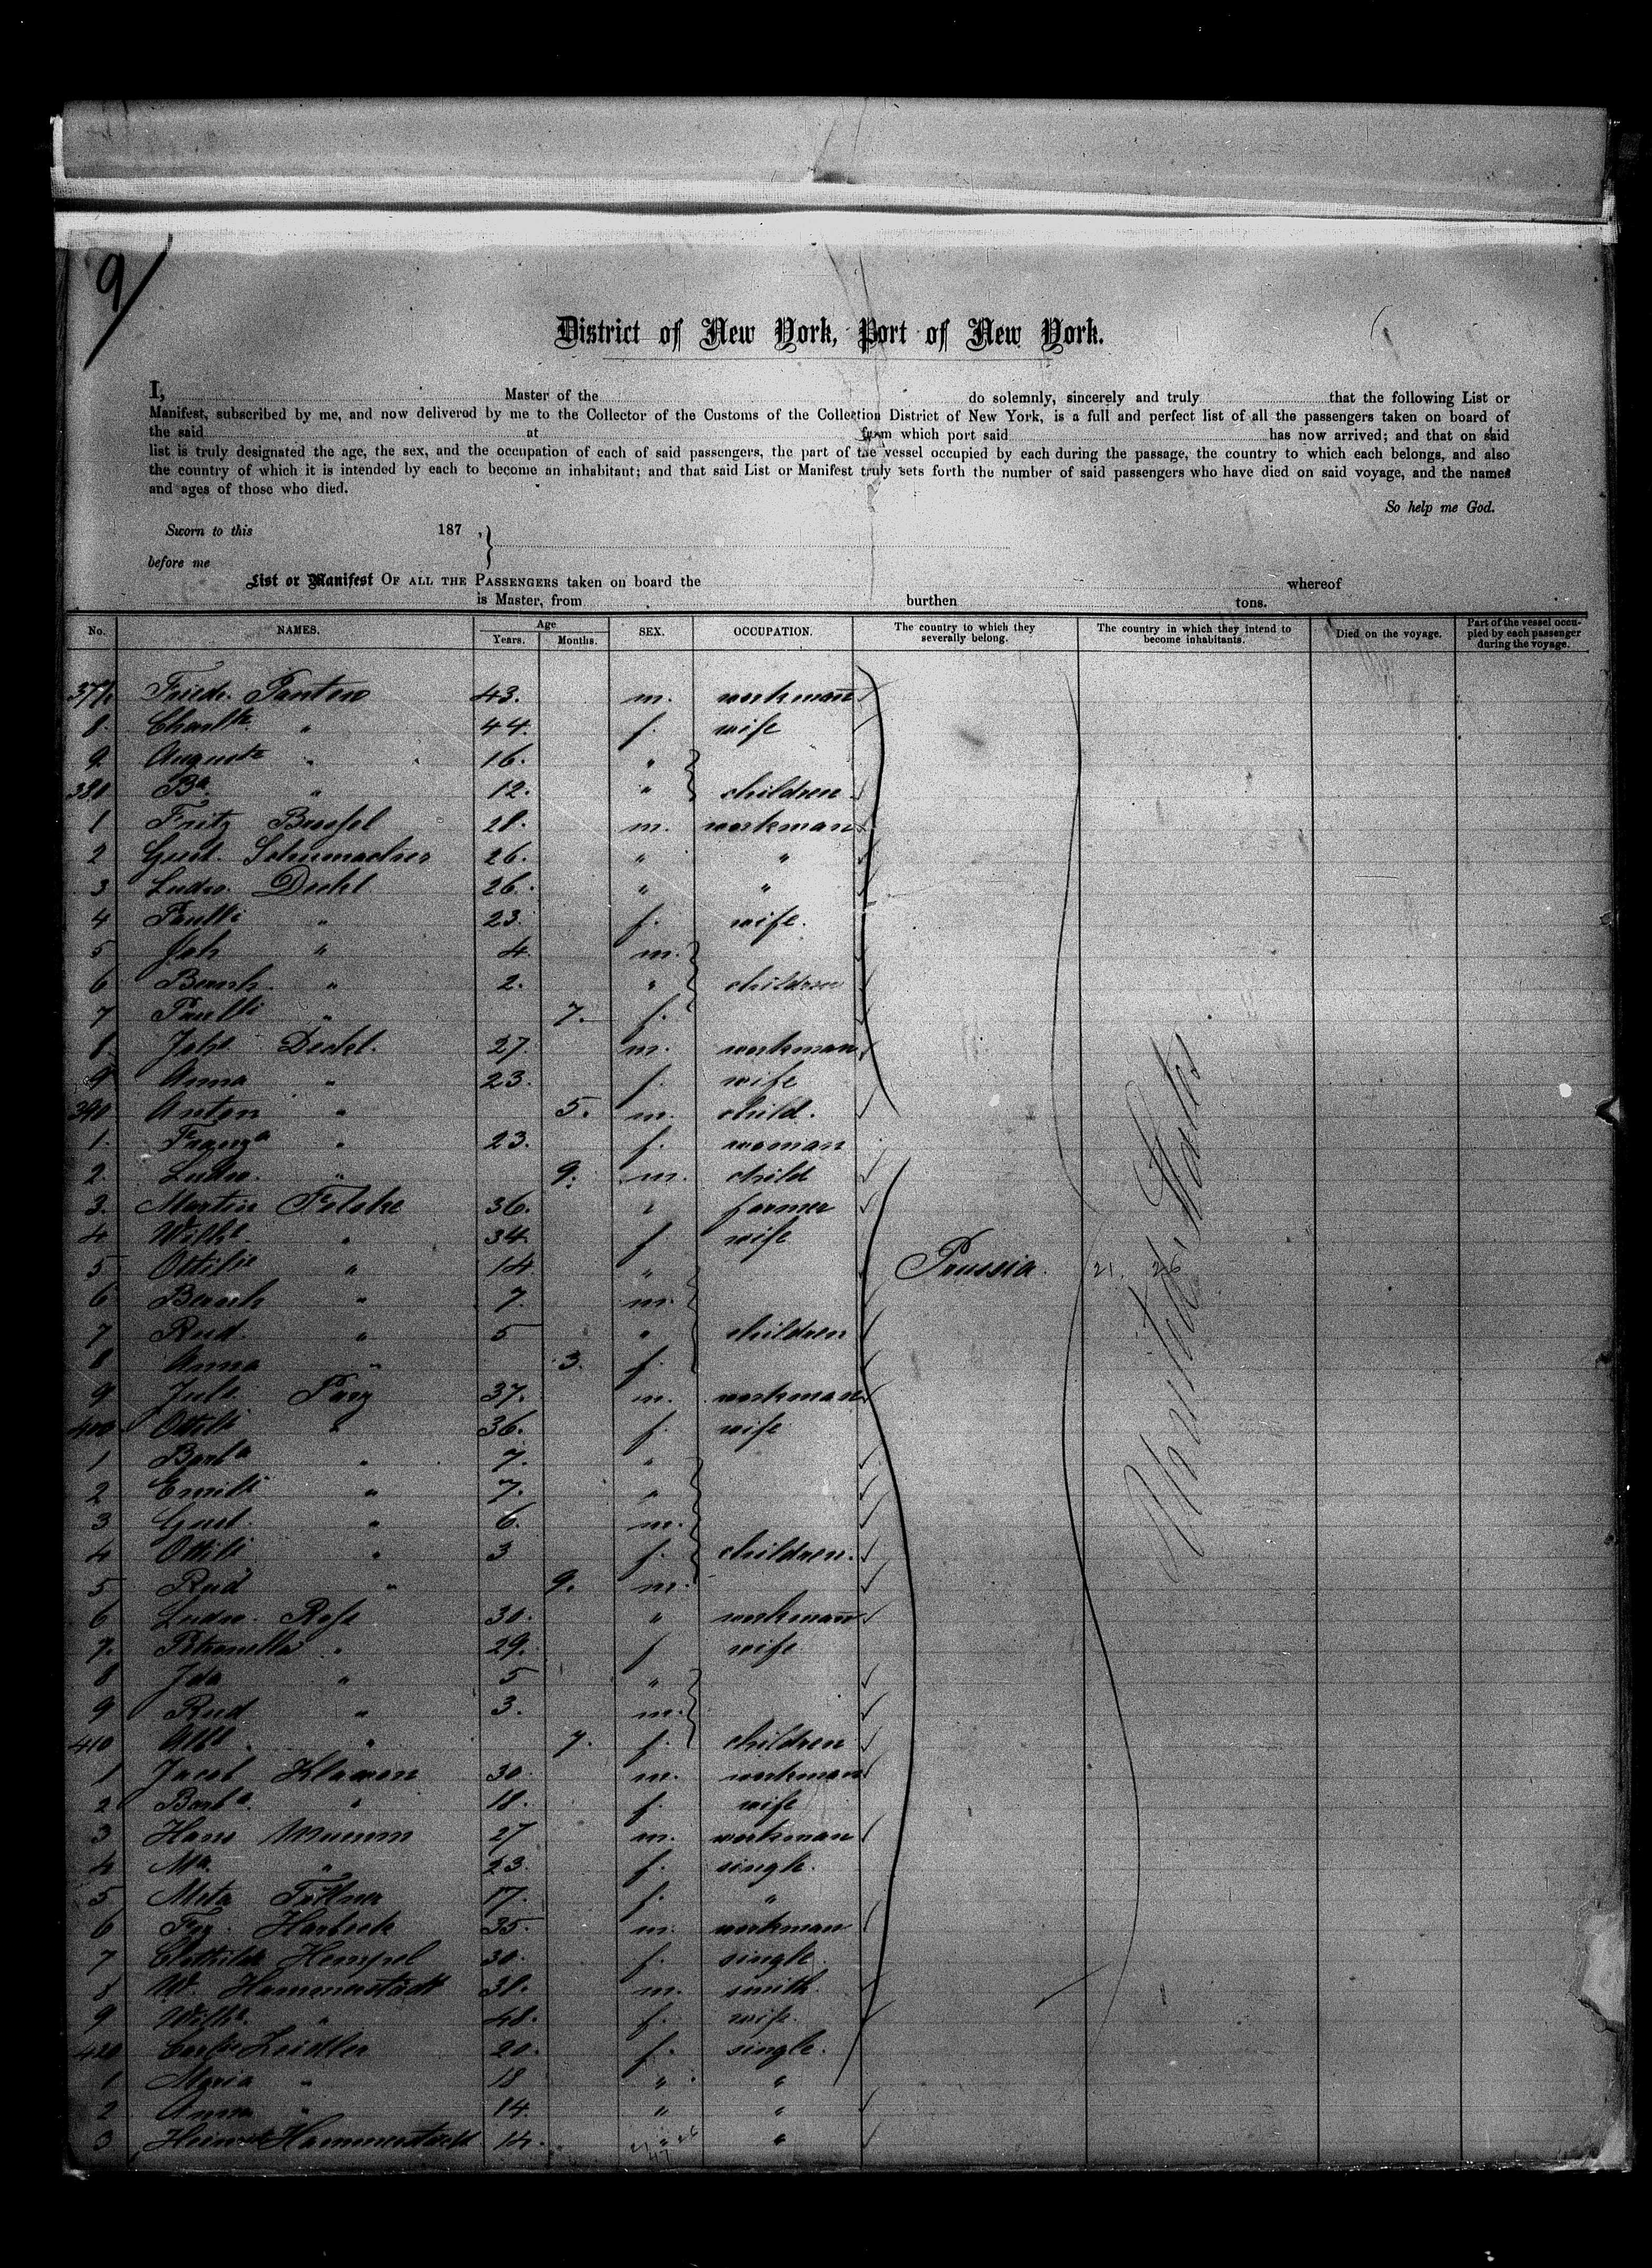 9/
District of New York, Port of New York.
I, Master of the do solemnly, sincerely and truly that the following List or
Manifest, subscribed by me, and now delivered by me to the Collector of the Customs of the Collection District of New York, is a full and perfect list of all the passengers taken on board of
the said at from which port said has now arrived; and that on said
list is truly designated the age, the sex, and the occupation of each of said passengers, the part of the vessel occupied by each during the passage, the country to which each belongs, and also
the country of which it is intended by each to become an inhabitant; and that said List or Manifest truly sets forth the number of said passengers who have died on said voyage, and the names
and ages of those who died.
So help me God.
Sworn to this 187 ,
before me
List or Manifest OF ALL THE PASSENGERS taken on board the whereof
is Master, from burthen tons.
No. NAMES. Age Years. Months. SEX. OCCUPATION. The country to which they severally belong. The country in which they intend to become inhabitants. Died on the voyage. Part of the vessel occupied by each passenger during the voyage.
377. Friedr. 43. m. workman
8. " 44. f. wife
9. Auguste " 16. "
380 " 12. " children
1 Fritz 28. m. workman
2 Gust. Schumacher 26. " "
3 Ludw. Deckl 26. " "
4 " 23. f. wife.
5 Joh " 4. m.
6 Bernh. " 2. " children
7 " 7. f.
8. Joh. Deckl. 27. m. workman
9 Anna " 23. f. wife
390 Anton " 5. m. child.
1. " 23. f. woman
2. Ludw. " 9. m. child
3. Martin Felske 36. " farmer
4 Wilh. " 34. f wife
5 Ottilie " 14 " Prussia. 21. 26.
6 Bernh " 7. m.
7 Rud. " 5 " children
8 Anna " 3. f.
9 Jul. 37. m. workman
400 Ottili " 36. f. wife
1 Barba " 7. "
2 Emili " 7. "
3 Gust. " 6. m.
4 Ottili " 3 f. children.
5 Rud " 9. m.
6 Ludw. Rose 30. " workman
7. Petronella " 29. f wife
8 Ida " 5 "
9 Rud " 3. m.
410 " 7. f. children
1 Jacob Klawon 30. m. workman
2 Barba. " 18. f. wife
3 Hans Mumm 27 m. workman
4 Ma. " 23. f. single.
5 Meta 17. f. "
6 Harbeck 35. m. workman
7 Clothilde Hempel 30. f. single
8 W. Hammerstädt 38. m. smith.
9 Wilh. " 48. f. wife.
420 Zeidler 20. f. single.
1 Maria " 18 " "
2 Anna " 14. " "
3 Hammerstädt 14. " "
United States